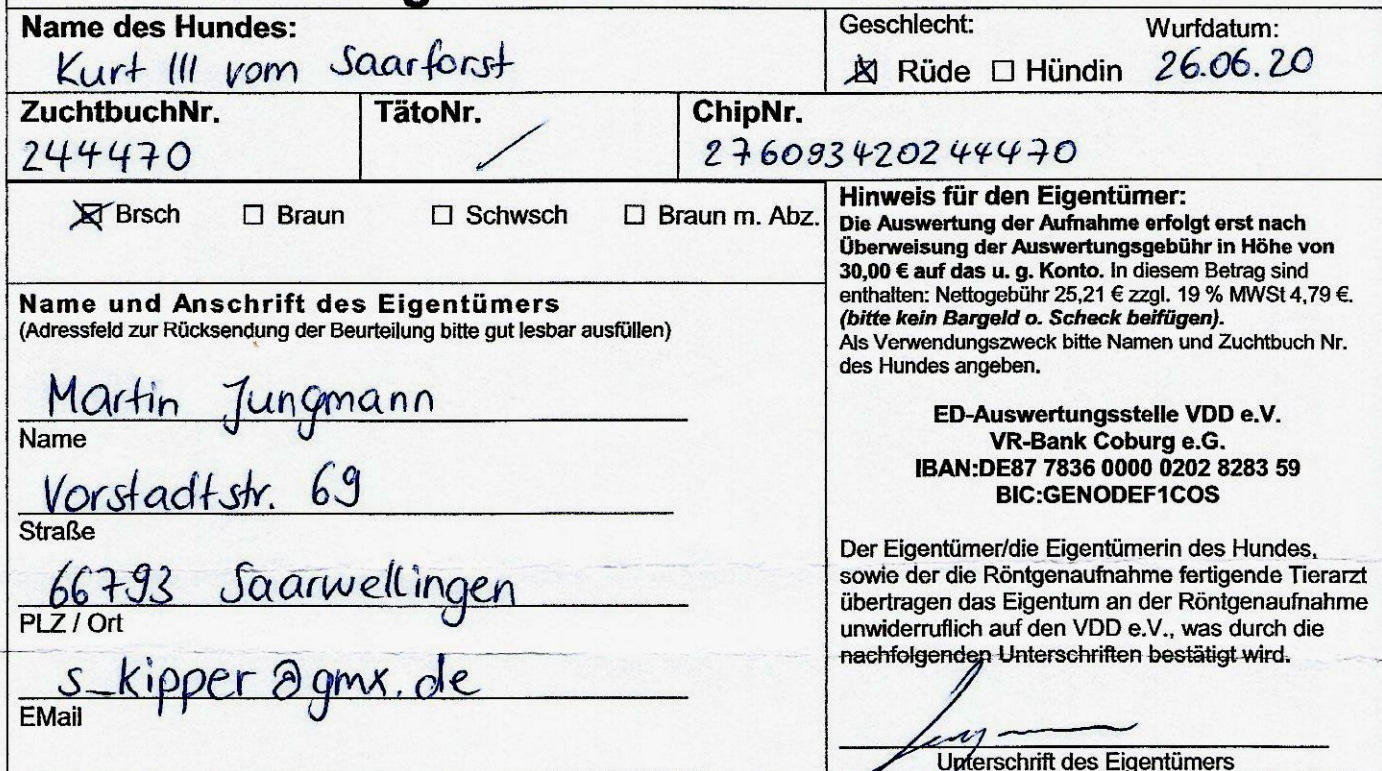 Name des Hundes:
Kurt III vom Saarforst
Geschlecht: Wurfdatum:
☒ Rüde ☐ Hündin 26.06.20
ZuchtbuchNr. TätoNr. ChipNr.
244470 / 276093420244470
☒ Brsch ☐ Braun ☐ Schwsch ☐ Braun m. Abz.
Name und Anschrift des Eigentümers
(Adressfeld zur Rücksendung der Beurteilung bitte gut lesbar ausfüllen)
Martin Jungmann
Name
Vorstadtstr. 69
Straße
66793 Saarwellingen
PLZ / Ort
s_kipper@gmx.de
EMail
Hinweis für den Eigentümer:
Die Auswertung der Aufnahme erfolgt erst nach
Überweisung der Auswertungsgebühr in Höhe von
30,00 € auf das u. g. Konto. In diesem Betrag sind
enthalten: Nettogebühr 25,21 € zzgl. 19 % MWSt 4,79 €.
(bitte kein Bargeld o. Scheck beifügen).
Als Verwendungszweck bitte Namen und Zuchtbuch Nr.
des Hundes angeben.
ED-Auswertungsstelle VDD e.V.
VR-Bank Coburg e.G.
IBAN:DE87 7836 0000 0202 8283 59
BIC:GENODEF1COS
Der Eigentümer/die Eigentümerin des Hundes,
sowie der die Röntgenaufnahme fertigende Tierarzt
übertragen das Eigentum an der Röntgenaufnahme
unwiderruflich auf den VDD e.V., was durch die
nachfolgenden Unterschriften bestätigt wird.
Unterschrift des Eigentümers